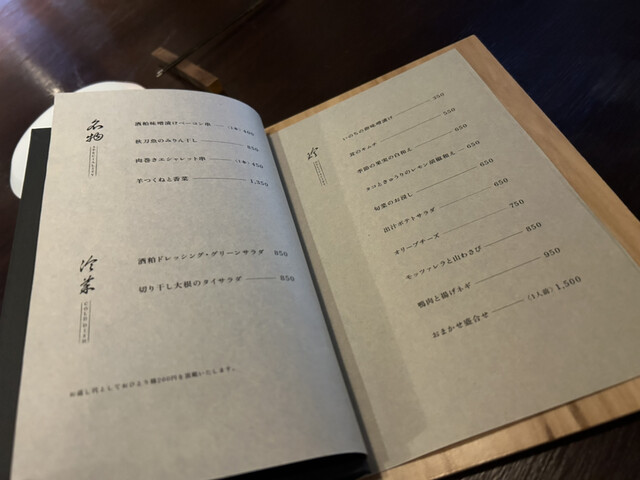 名物
酒粕味噌漬けベーコン串 (1本) 600
秋刀魚のみりん干し 850
肉巻きエシャレット串 (1本)
羊つくねと香菜 1,350
冷菜
酒粕ドレッシング・グリーンサラダ 950
切り干し大根のタイサラダ 850
お通し代としておひとり様200円を頂戴いたします。
いのちの卵味噌漬け 450
キムチ 550
季節の果菜の白和え 650
タコときゅうりのレモン胡椒和え 650
旬菜のお浸し 650
出汁ポテトサラダ 650
オリーブチーズ 750
モッツァレラと山わさび 850
鴨肉と揚げネギ 950
おまかせ盛合せ (1人前) 1,500